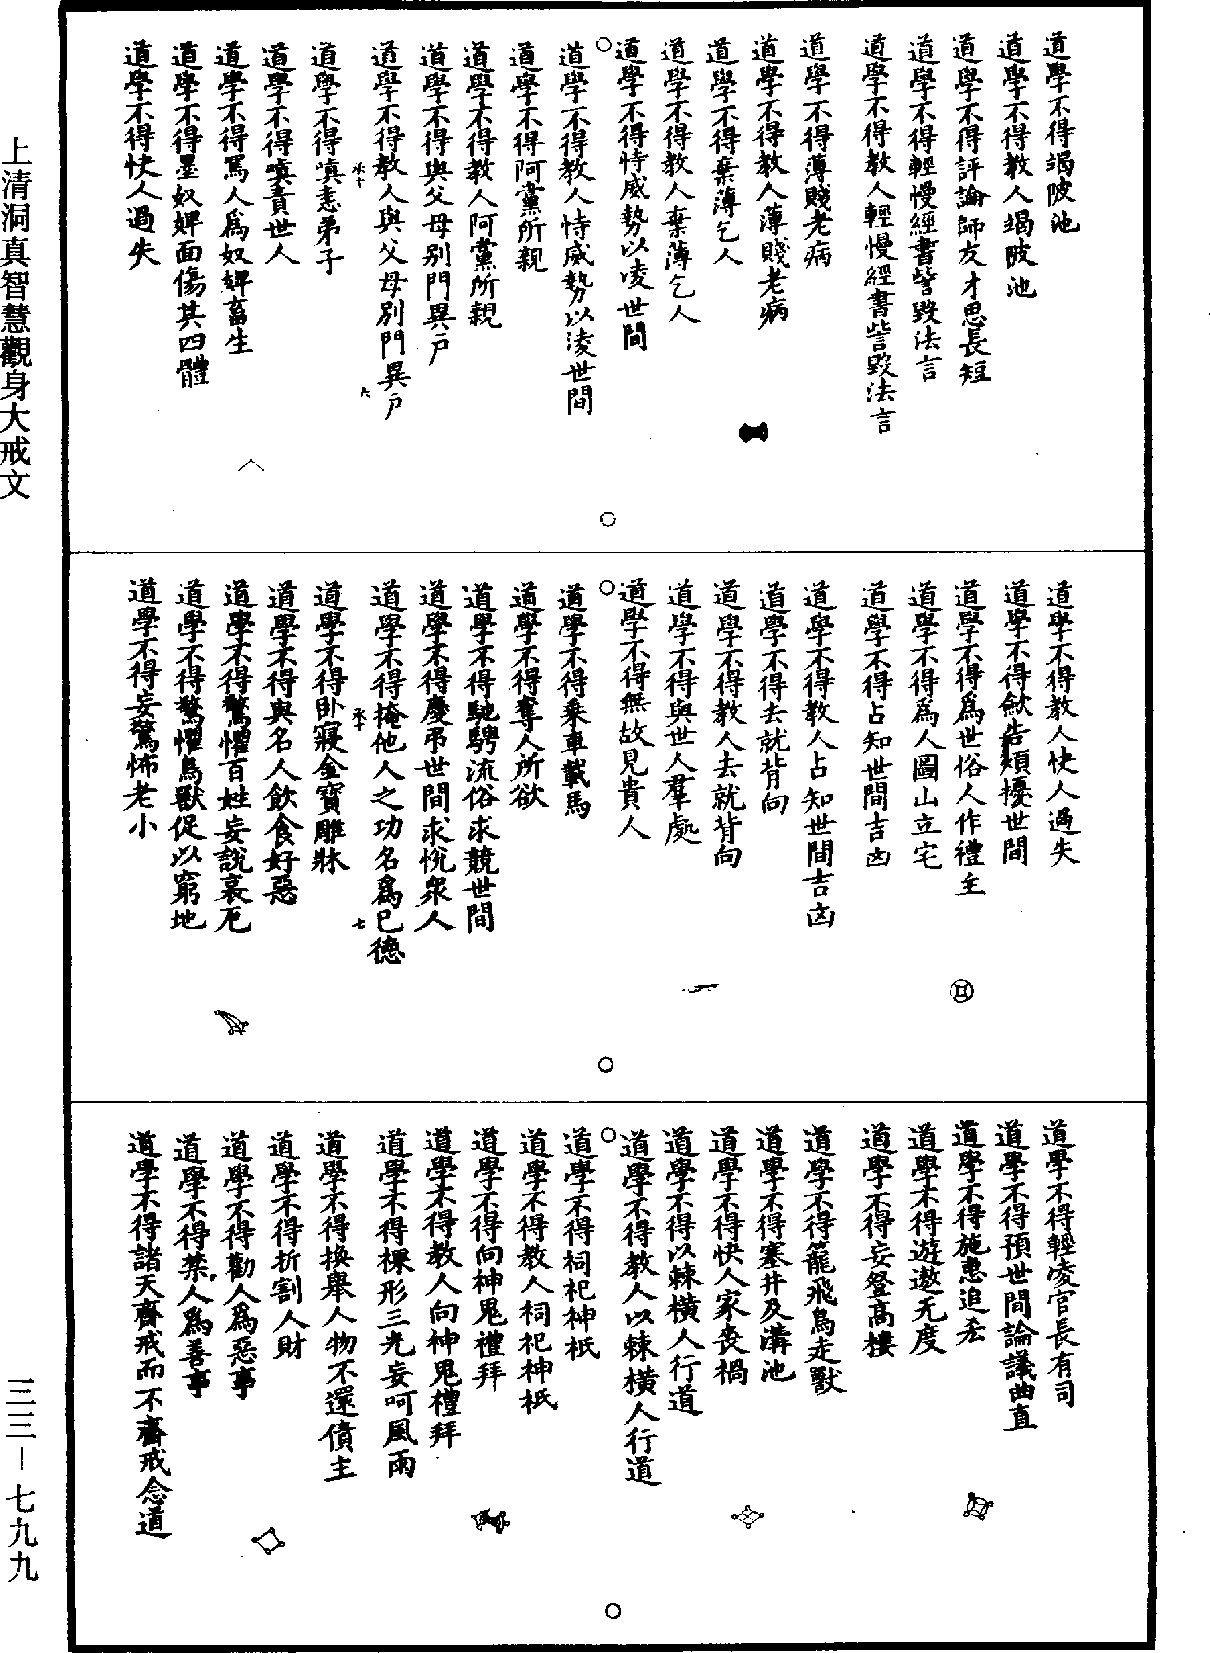 道學不得竭陂池
道學不得教人竭陂池
道學不得評論師友才思長短
道學不得輕慢經書訾毀法言
道學不得教人輕慢經書訾毀法言
道學不得薄賤老病
道學不得教人薄賤老病
道學不得棄薄乞人
道學不得教人棄薄乞人
道學不得恃威勢以凌世間
道學不得教人恃威勢以凌世間
道學不得阿黨所親
道學不得教人阿黨所親
道學不得與父母別門異戶
道學不得教人與父母別門異戶
道學不得嗔恚弟子
道學不得嗔責世人
道學不得罵人為奴婢畜生
道學不得墨奴婢面傷其四體
道學不得快人過失
道學不得教人快人過失
道學不得㱃告煩擾世間
道學不得為世俗人作禮主
道學不得為人圖山立宅
道學不得占知世間吉凶
道學不得教人占知世間吉凶
道學不得去就背向
道學不得教人去就背向
道學不得與世人羣處
道學不得無故見貴人
道學不得乘車載馬
道學不得奪人所欲
道學不得馳騁流俗求競世間
道學不得慶弔世間求悅衆人
道學不得掩他人之功名為已德
道學不得卧寢金寶雕牀
道學不得與名人飲食好惡
道學不得驚懼百姓妄說衰厄
道學不得驚懼鳥獸促以窮地
道學不得妄驚怖老小
道學不得輕凌官長有司
道學不得預世間論議曲直
道學不得施惠追丞
道學不得遊遨无度
道學不得妄登高樓
道學不得籠飛鳥走獸
道學不得塞井及溝池
道學不得快人家喪禍
道學不得以棘橫人行道
道學不得教人以棘橫人行道
道學不得祠祀神祇
道學不得教人祠祀神祇
道學不得向神鬼禮拜
道學不得教人向神鬼禮拜
道學不得裸形三光妄呵風雨
道學不得換舉人物不還債主
道學不得折割人財
道學不得勸人為惡事
道學不得禁人為善事
道學不得諸天齋戒而不齋戒念道
上清洞真智慧觀身大戒文
三三－七九九